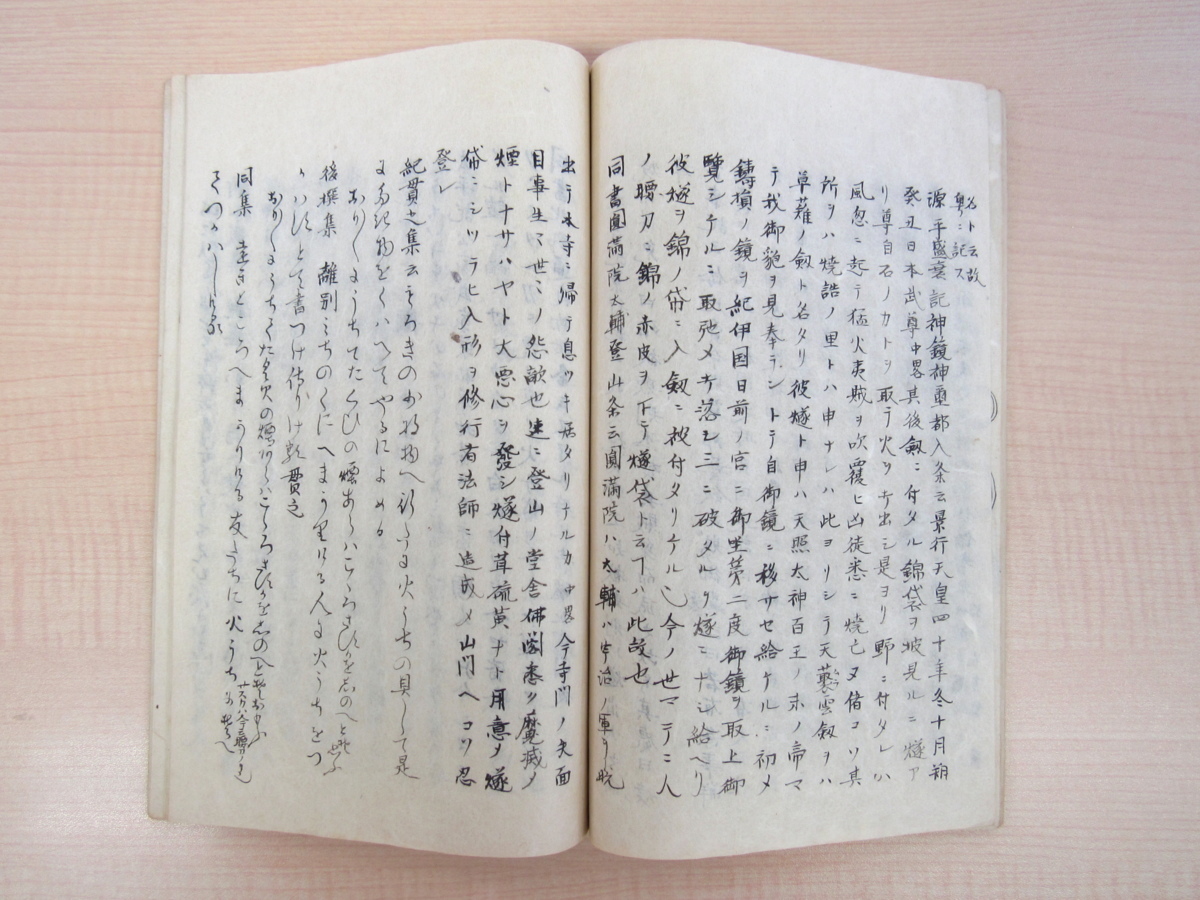 名ト云故
粤ニ記ス
源平盛衰記神鏡神璽都入条云景行天皇四十年冬十月朔
癸丑日本武尊中畧其後劔ニ付タル錦袋ヲ披見ルニ燧ア
リ尊自石ノカトヲ取テ火ヲ打出シ是ヨリ野ニ付タレハ
風忽ニ起テ猛火夷賊ヲ吹覆ヒ凶徒悉ニ焼亡ヌ偖コソ其
所ヲハ焼詰ノ里トハ申ナレハ此ヨリシテ天叢雲劔ヲハ
草薙ノ劔ト名タリ彼燧ト申ハ天照太神百王ノ末ノ帝マ
テ我御貌ヲ見奉ラントテ自御鏡ニ移サセ給ケルニ初メ
鑄損ノ鏡ヲ紀伊国日前ノ宮ニ御坐第二度御鏡ヲ取上御
覽シケルニ取弛メ打落シ三ニ破タルヲ燧ニナシ給ヘリ
彼燧ヲ錦ノ袋ニ入劔ニ被付タリケル也今ノ世マテニ人
ノ腰刀ニ錦ノ赤皮ヲ下テ燧袋ト云フハ此故也
同書圓滿院大輔登山条云圓滿院ハ大輔ハ宇治ノ軍ヲ脱
出テ本寺ニ歸テ息ツキ居タリケルカ中畧今寺門ノ失面
目事生々世々ノ怨敵也速ニ登山ノ堂舎佛閣悉ク魔滅ノ
煙トナサハヤト大惡心ヲ發シ燧付茸硫黄ナト用意メ燧
袋ニシツラヒ入形ヲ修行者法師ニ造成メ山門ヘコソ忍
登レ
紀貫之集云みちのくのかみ 火うちの具して是
にたき物をくはへてやるによめる
おりしもうちてたくひの煙あらはこゝろさすかをしのへとそ思ふ
後撰集 離別みちのくにへまかりける人に火うちをつ
かはすとて書つけ侍りける 貫之
おり〳〵にうちてたく火の煙あらはこゝろさすかをしのへとそおもふ
同集 とをきところへまかりける友たちに火うちにそへて
つかはしける